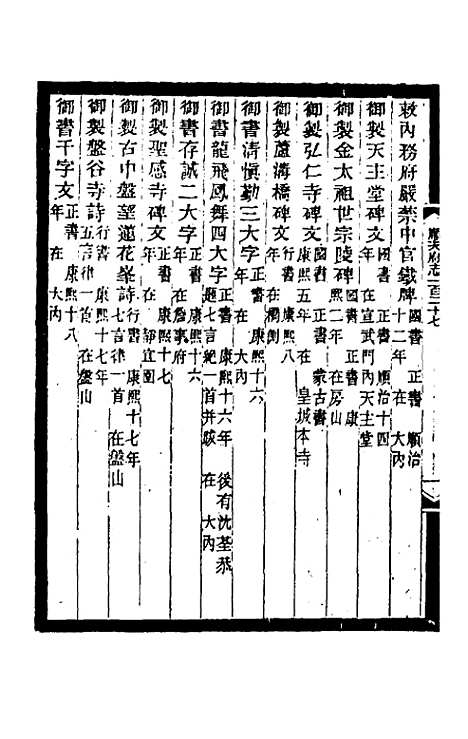 順天府志一百二十七
敕內務府嚴禁中官鐵牌國書 正書 順治十二年 在 大內
御製天主堂碑文國書 正書 順治十四年 在宣武門內天主堂
御製金太祖世宗陵碑國書 正書 康熙二年 在房山
御製弘仁寺碑文國書 正書 蒙古書 康熙五年 在 皇城本寺
御製蘆溝橋碑文行書 康熙八年 在橋側
御書清慎勤三大字正書 康熙十六年 在 大內
御書龍飛鳳舞四大字正書 康熙十六年 後有沈荃恭題七言絕一首并跋 在 大內
御書存誠二大字正書 康熙十六年 在詹事府
御製聖感寺碑文行書 康熙十七年 在 靜宜園
御製古中盤望蓮花峯詩行書 康熙十七年 七言律一首 在盤山
御製盤谷寺詩行書 康熙十七年 五言律一首 在盤山
御書千字文正書 康熙十八年 在 大內